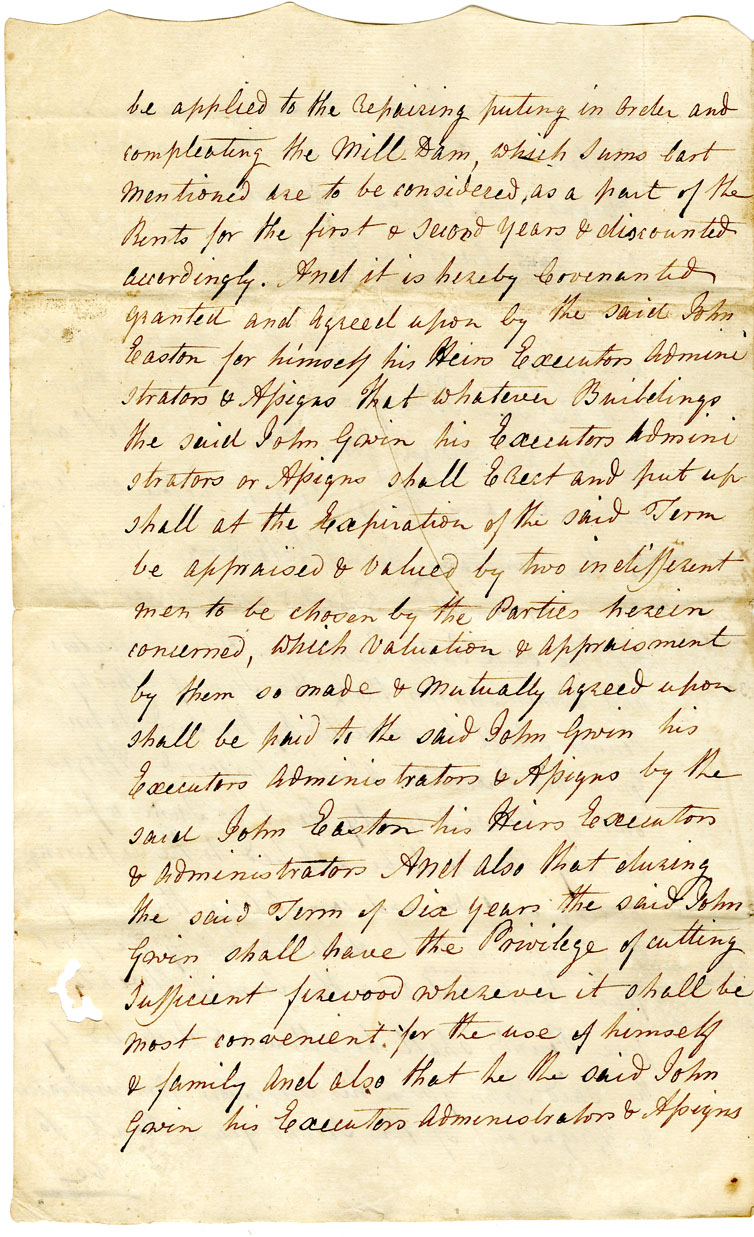 be applied to the Repairing puting in order and
compleating the Mill Dam, which Sums last
mentioned are to be considered, as a part of the
Rents for the first & second years & discounted
accordingly. And it is hereby Covenanted
granted and agreed upon by the said John
Easton for himself his Heirs Executors Admini
strators & Assigns that whatever Buildings
the said John Gwin his Executors Admini
strators or Assigns shall Erect and put up
shall at the Expiration of the said Term
be appraised & valued by two indifferent
men to be chosen by the Parties herein
concerned, which valuation & appraisment
by them so made & mutually agreed upon
shall be paid to the said John Gwin his
Executors Administrators & Assigns by the
said John Easton his Heirs Executors
& Administrators And also that during
the said Term of Six years the said John
Gwin shall have the Privilege of cutting
Sufficient firewood wherever it shall be
most convenient for the use of himself
& family And also that he the said John
Gwin his Executors Administrators & Assigns